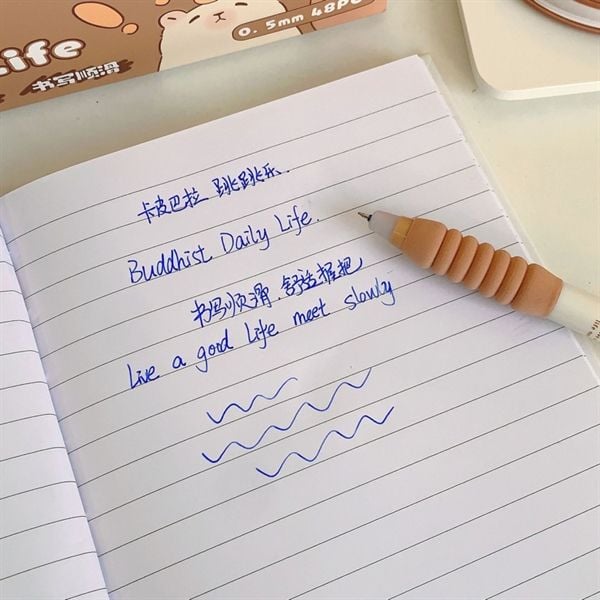 life
0.5mm 48P
书写顺滑
卡皮巴拉 跳跳乐.
Buddhist Daily Life.
书写顺滑.舒适握把
Live a good life meet slowly